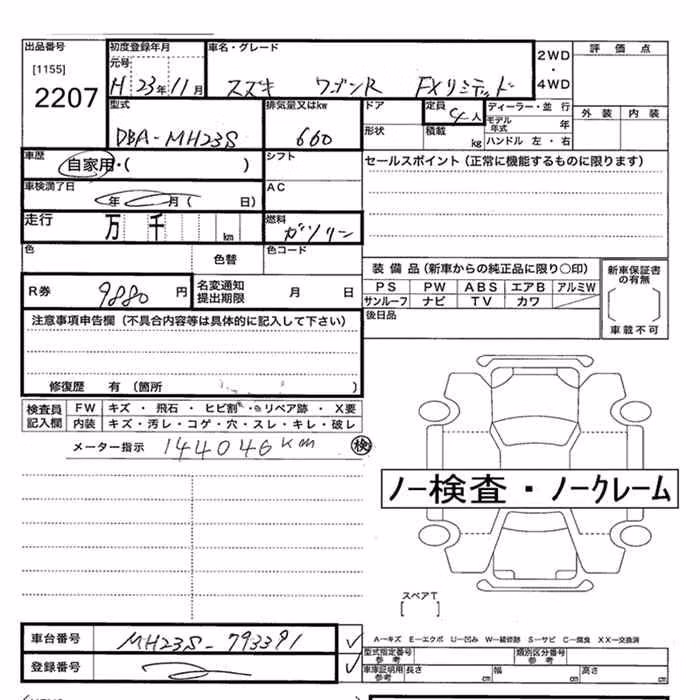 出品番号 初度登録年月 車名・グレード 2WD・4WD 評価点
[1155] 元号
2207 H 23年 11月 スズキ ワゴンR FXリミテッド
型式 排気量又はkw ドア 定員 4人 ディーラー・並行 外装 内装
DBA-MH23S 660 形状 積載 kg モデル年式 年
ハンドル 左・右
車歴 自家用・( ) シフト セールスポイント(正常に機能するものに限ります)
車検満了日 年 月( 日) AC
走行 万 千 km 燃料 ガソリン
色 色替 色コード
装備品(新車からの純正品に限り○印) 新車保証書の有無
R券 9880円 名変通知提出期限 月 日 PS PW ABS エアB アルミW
サンルーフ ナビ TV カワ 車載不可
注意事項申告欄(不具合内容等は具体的に記入して下さい) 後日品
修復歴 有(箇所 )
検査員記入欄 FW キズ・飛石・ヒビ割・リペア跡・X要
内装 キズ・汚レ・コゲ・穴・スレ・キレ・破レ
メーター指示 144046km 検
ノー検査・ノークレーム
スペアT
[ ]
車台番号 MH23S-793391 ✓ A−キズ E−エクボ U−凹み W−補修跡 S−サビ C−腐食 XX−交換済
型式指定番号 参考 類別区分番号 参考
登録番号 ✓ 車庫証明用参考 長さ cm 幅 cm 高さ cm